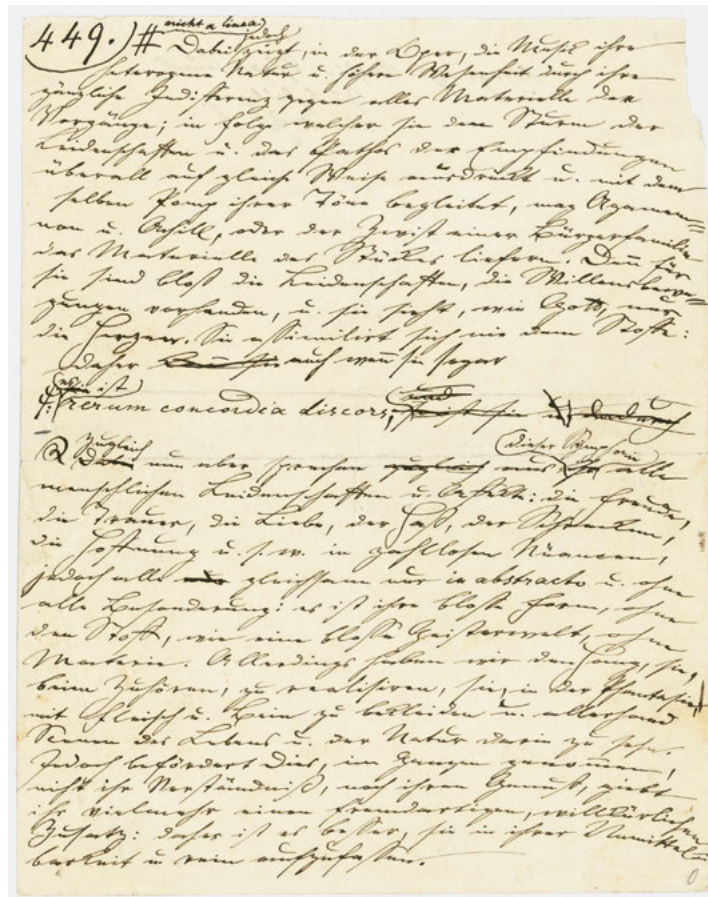 449.) # nicht a linea
Dabei zeigt jedoch, in der Oper, die Musik ihre
heterogene Natur u. höhere Wesenheit durch ihre
gänzliche Indifferenz gegen alles Materielle der
Vorgänge; in Folge welcher sie den Sturm der
Leidenschaften u. das Pathos der Empfindungen
überall auf gleiche Weise ausdrückt u. mit dem
selben Pomp ihrer Töne begleitet, mag Agamem=
non u. Achill, oder der Zwist einer Bürgerfamilie
das Materielle des Stückes liefern. Denn für
sie sind bloß die Leidenschaften, die Willensbewe=
gungen vorhanden, u. sie sieht, wie Gott, nur
die Herzen. Sie assimilirt sich nie dem Stoffe:
daher auch wenn sie sogar
ist und
rerum concordia discors, ist sie dadurch
Zugleich dieser Symphonie
nun aber sprechen zugleich aus alle
menschlichen Leidenschaften u. Affekte: die Freude,
die Trauer, die Liebe, der Haß, der Schrecken,
die Hoffnung u. s. w. in zahllosen Nüancen,
jedoch alle nur gleichsam nur in abstracto u. ohne
alle Besonderung: es ist ihre bloße Form, ohne
den Stoff, wie eine bloße Geisterwelt, ohne
Materie. Allerdings haben wir den Hang, sie,
beim Zuhören, zu realisiren, sie, in der Phantasie,
mit Fleisch u. Bein zu bekleiden u. allerhand
Scenen des Lebens u. der Natur darin zu sehn.
Jedoch befördert Dies, im Ganzen genommen,
nicht ihr Verständniß, noch ihren Genuß, giebt
ihr vielmehr einen fremdartigen, willkürlichen
Zusatz: daher ist es besser, sie in ihrer Unmittel=
barkeit u. rein aufzufassen.